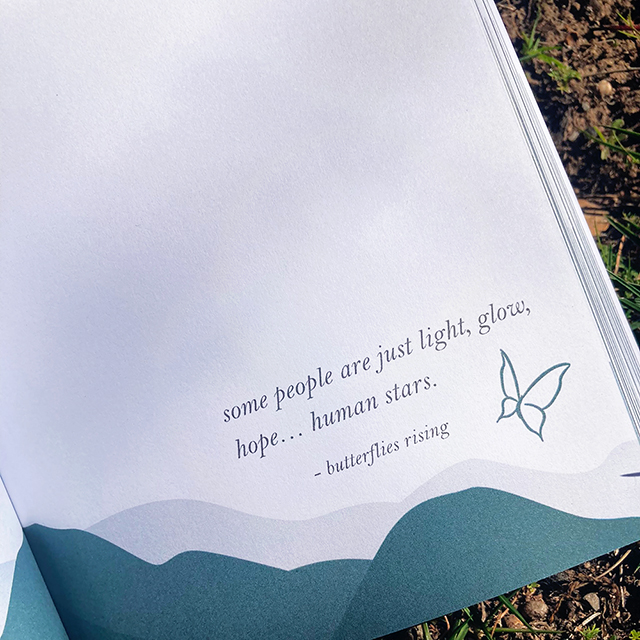 some people are just light, glow,
hope... human stars.
- butterflies rising